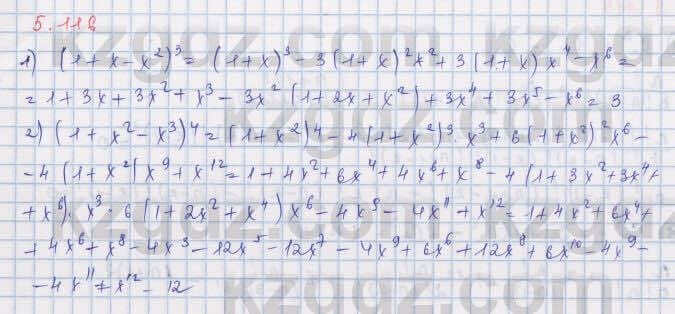 5.118
1) (1+x-x²)³ = (1+x)³ - 3(1+x)²x² + 3(1+x)x⁴ - x⁶ =
= 1+3x+3x²+x³ - 3x²(1+2x+x²) + 3x⁴ + 3x⁵ - x⁶ = 3
2) (1+x²-x³)⁴ = (1+x²)⁴ - 4(1+x²)³·x³ + 6(1+x²)²x⁶ -
- 4(1+x²)x⁹ + x¹² = 1+4x²+6x⁴+4x⁶+x⁸ - 4(1+3x²+3x⁴+
+x⁶)·x³·6(1+2x²+x⁴)x⁶ - 4x⁹ - 4x¹¹ + x¹² = 1+4x²+6x⁴+
+4x⁶+x⁸-4x³-12x⁵-12x⁷-4x⁹+6x⁶+12x⁸+6x¹⁰-4x⁹-
-4x¹¹+x¹² - 12
kzgdz.com